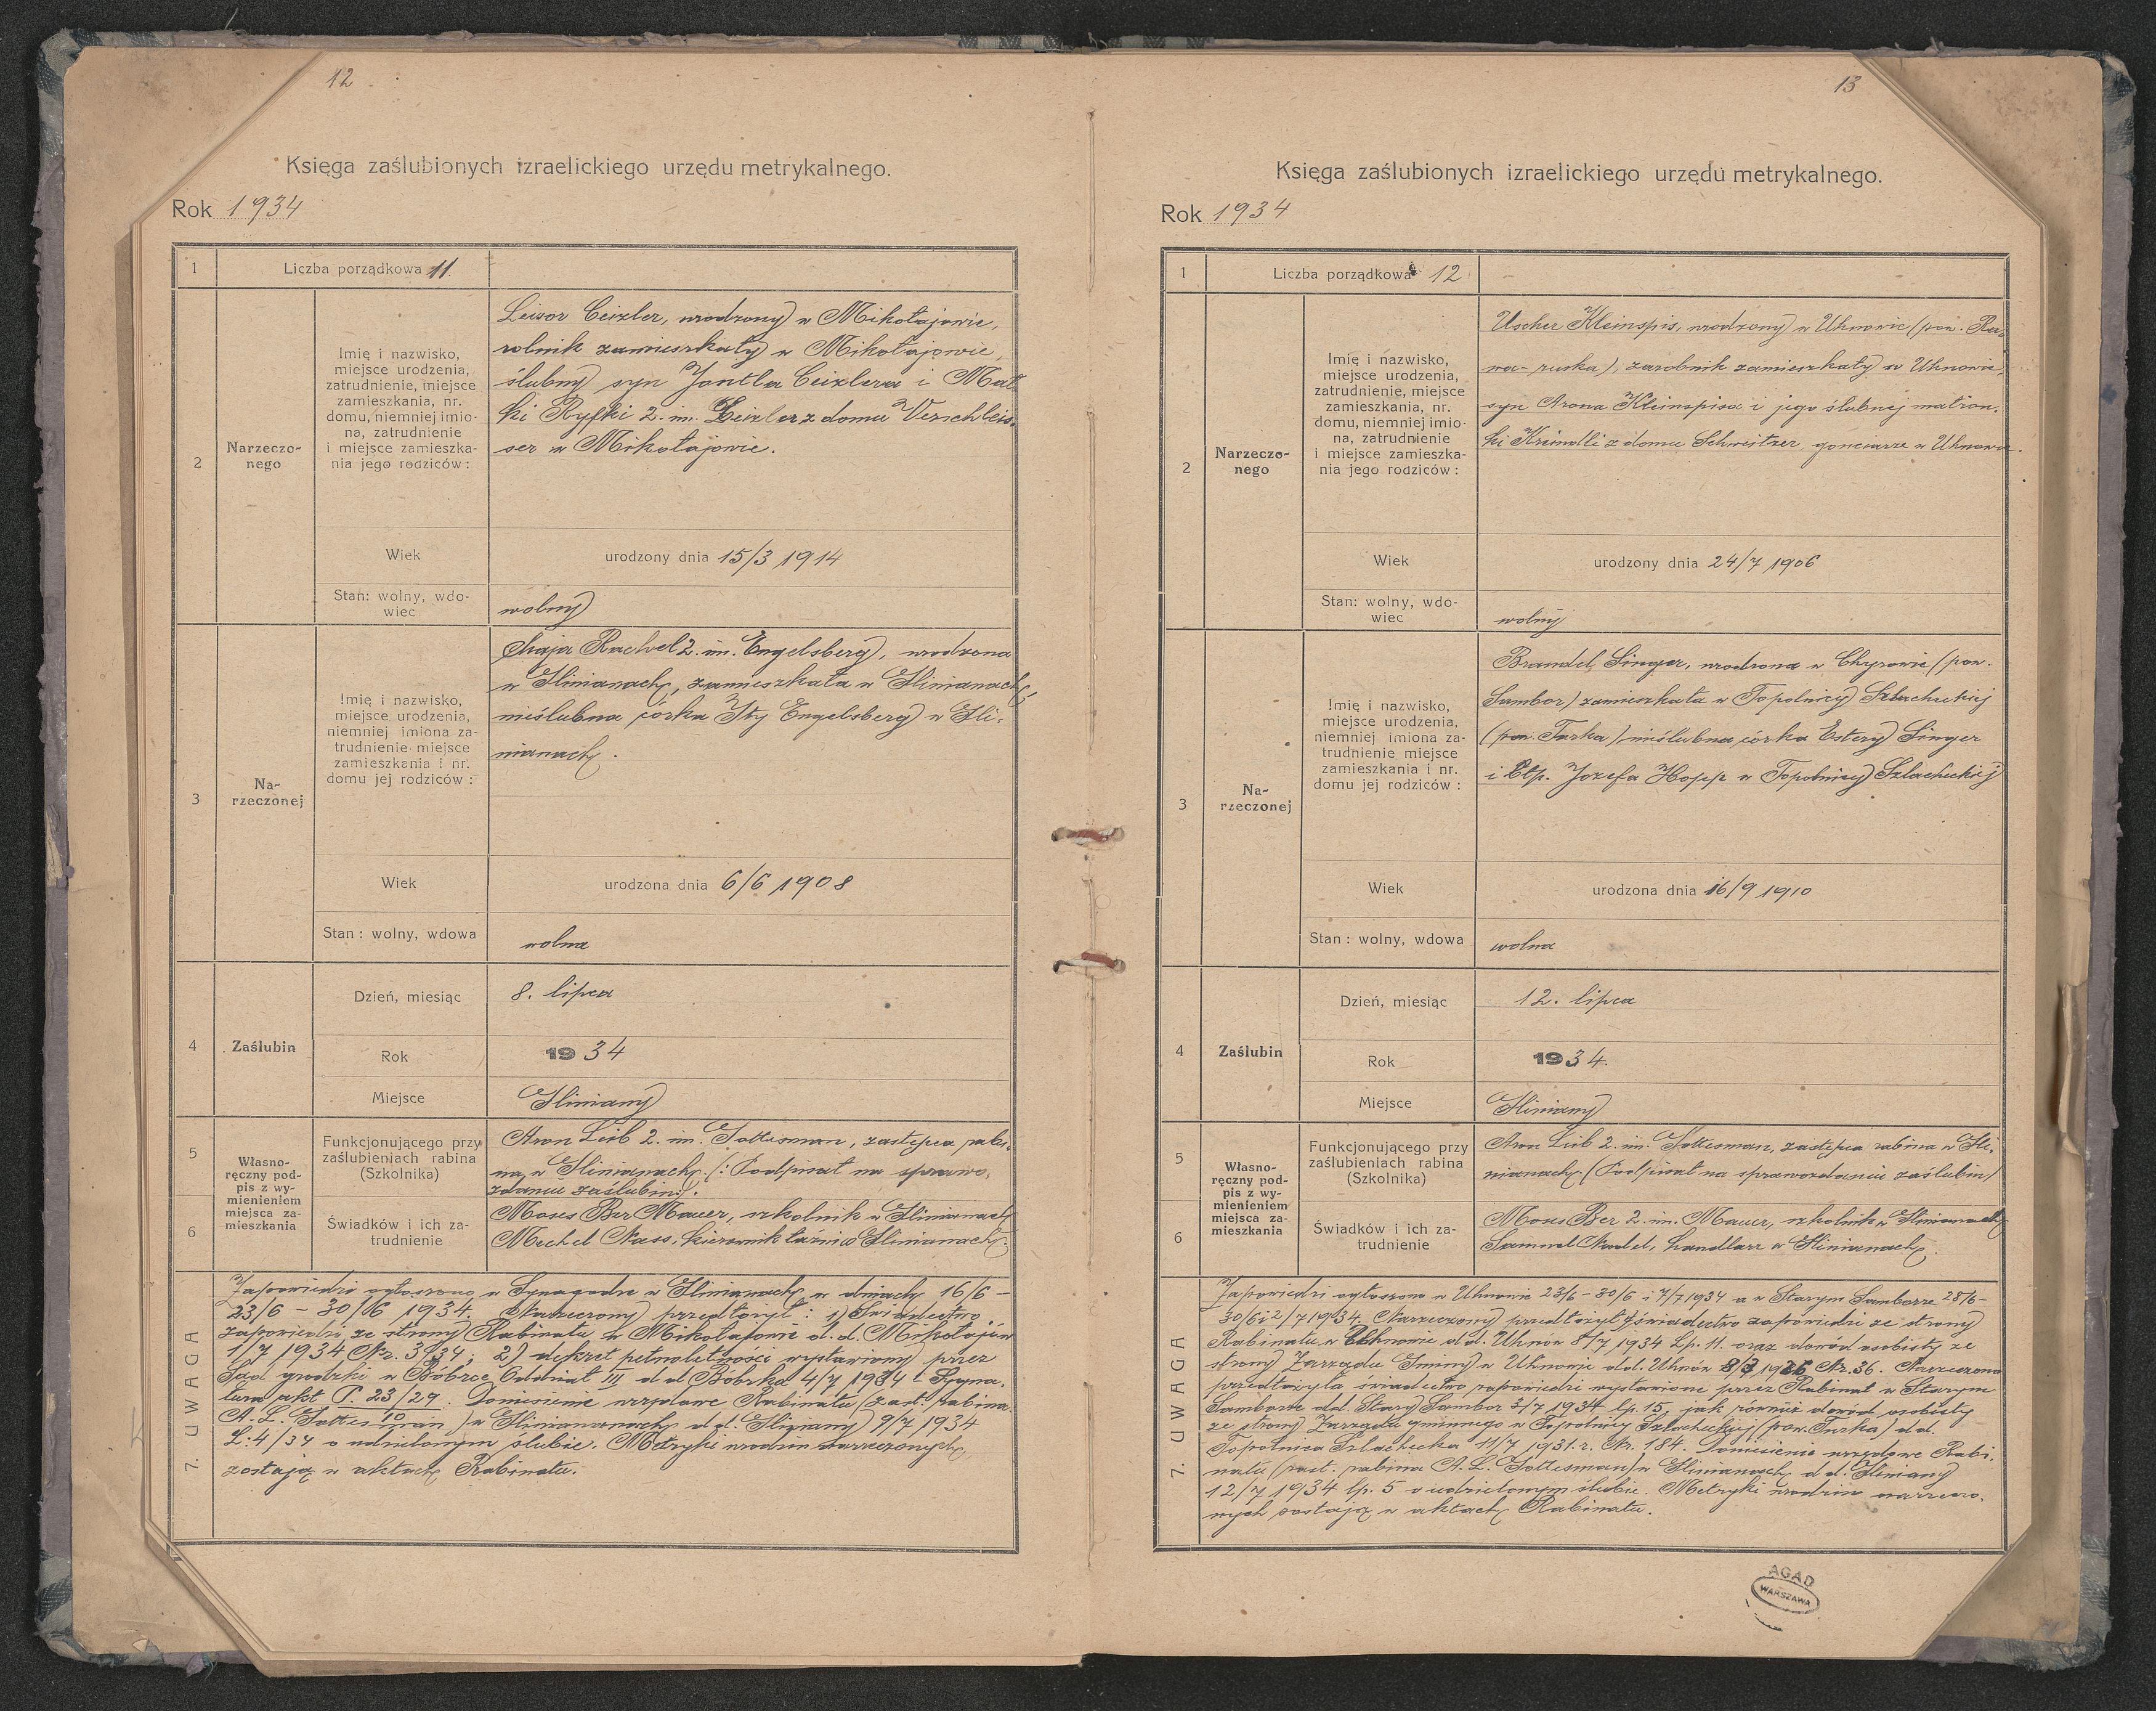 12
Księga zaślubionych izraelickiego urzędu metrykalnego.
Rok 1934
1
Liczba porządkowa 11.
2
Narzeczo-
nego
Imię i nazwisko,
miejsce urodzenia,
zatrudnienie, miejsce
zamieszkania, nr.
domu, niemniej imio-
na, zatrudnienie
i miejsce zamieszka-
nia jego rodziców :
Leisor Ceizler, urodzony w Mikołajowie,
rolnik zamieszkały w Mikołajowie,
ślubny syn Jontla Ceizlera i Mat
ki Ryfki 2. im. Ceizler z domu Verschleis-
ser w Mikołajowie.
Wiek
urodzony dnia 15/3 1914
Stan: wolny, wdo-
wiec
wolny
3
Na-
rzeczonej
Imię i nazwisko,
miejsce urodzenia,
niemniej imiona za-
trudnienie miejsce
zamieszkania i nr.
domu jej rodziców :
Chaja Rachel 2. im. Engelsberg, urodzona
w Glinianach, zamieszkała w Glinianach,
nieślubna córka Ity Engelsberg w Gli-
nianach.
Wiek
urodzona dnia 6/6 1908
Stan : wolny, wdowa
wolna
4
Zaślubin
Dzień, miesiąc
8. lipca
Rok
1934
Miejsce
Gliniany
5
6
Własno-
ręczny pod-
pis z wy-
mienieniem
miejsca za-
mieszkania
Funkcjonującego przy
zaślubieniach rabina
(Szkolnika)
Aron Leib 2. im. Sottesman, zastępca rabi-
na w Glinianach (: Podpisał na sprawo-
zdaniu zaślubin:).
Świadków i ich za-
trudnienie
Moses Ber Mauer, szkolnik w Glinianach
Mechel Nass, kierownik łazni w Glinianach.
7. UWAGA
Zapowiedzi ogłoszono w Synagodze w Glinianach w dniach 16/6 -
23/6 - 30/6 1934. Narzeczony przedłożył: 1) Świadectwo
zapowiedzi ze strony Rabinatu w Mikołajowie d. d. Mikołajów
1/7 1934 Nr. 3/934; 2) dekret pełnoletności wystawiony przez
Sąd grodzki w Bóbrce Oddział III d d Bóbrka 4/7 1934 L. Sygna-
tura akt P. 23/29. Doniesienie urzędowe Rabinatu (zast. rabina
10
A. L. Sottesman) w Glinianach d d. Gliniany 9/7 1934
L: 4/34 o udzielonym ślubie. Metryki urodzin narzeczonych
zostają w aktach Rabinatu.
13
Księga zaślubionych izraelickiego urzędu metrykalnego.
Rok 1934
1
Liczba porządkowa 12
2
Narzeczo-
nego
Imię i nazwisko,
miejsce urodzenia,
zatrudnienie, miejsce
zamieszkania, nr.
domu, niemniej imio-
na, zatrudnienie
i miejsce zamieszka-
nia jego rodziców :
Uscher Kleinspis, urodzony w Uhnowie (pow. Ra-
wa-ruska), zarobnik zamieszkały w Uhnowie,
syn Arona Kleinspisa i jego ślubnej małżon-
ki Kreindli z domu Schweitzer, gonciarze w Uhnowie.
Wiek
urodzony dnia 24/7 1906
Stan: wolny, wdo-
wiec
wolny
3
Na-
rzeczonej
Imię i nazwisko,
miejsce urodzenia,
niemniej imiona za-
trudnienie miejsce
zamieszkania i nr.
domu jej rodziców :
Brandel Singer, urodzona w Chyrowie (pow.
Sambor) zamieszkała w Topolnicy Szlacheckiej
(pow. Turka) nieślubna córka Estery Singer
i Józefa Hopp w Topolnicy Szlacheckiej
Wiek
urodzona dnia 16/9 1910
Stan : wolny, wdowa
wolna
4
Zaślubin
Dzień, miesiąc
12. lipca
Rok
1934.
Miejsce
Gliniany
5
6
Własno-
ręczny pod-
pis z wy-
mienieniem
miejsca za-
mieszkania
Funkcjonującego przy
zaślubieniach rabina
(Szkolnika)
Aron Leib 2. im. Sottesman, zastępca rabina w Gli-
nianach (Podpisał na sprawozdaniu zaślubin)
Świadków i ich za-
trudnienie
Moses Ber 2. im. Mauer, szkolnik w Glinianach
Samuel Nadel, handlarz w Glinianach.
7. UWAGA
Zapowiedzi ogłoszono w Uhnowie 23/6 - 30/6 i 7/7 1934 a w Starym Samborze 28/6 -
30/6 i 2/7 1934. Narzeczony przedłożył świadectwo zapowiedzi ze strony
Rabinatu w Uhnowie d d. Uhnów 8/7 1934 Lp. 11. oraz dowód osobisty ze
strony Zarządu Gminy w Uhnowie d d. Uhnów Nr. 36. Narzeczona
przedłożyła świadectwo zapowiedzi wystawione przez Rabinat w Starym
Samborze d d. Stary Sambor 3/7 1934 lp. 15, jak również dowód osobisty
ze strony Zarządu gminnego w Topolnicy Szlacheckiej (pow. Turka) d d.
Topolnica Szlachecka 11/7 1931. r. Nr. 184. Doniesienie urzędowe Rabi-
natu (zast. rabina A. L. Sottesman) w Glinianach d d. Gliniany
12/7 1934 lp. 5 o udzielonym ślubie. Metryki urodzin narzeczo-
nych zostają w aktach Rabinatu.
AGAD
WARSZAWA